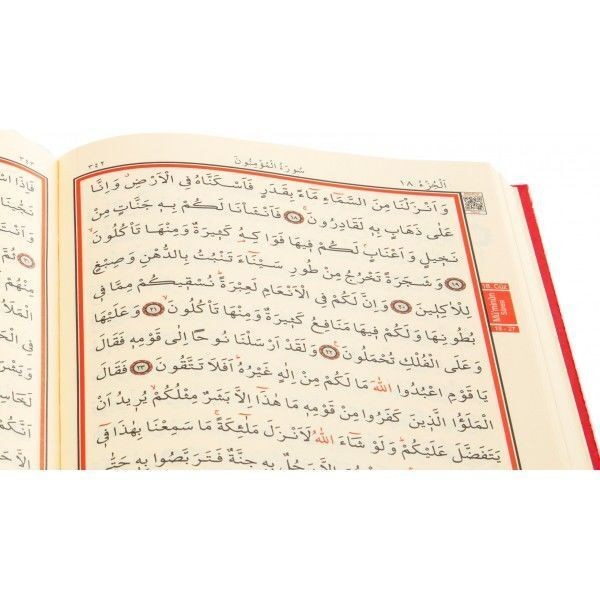 ٣٤٣
٣٤٢
سُورَةُ الْمُؤْمِنُونَ
اَلْجُزْءُ ١٨
وَاَنْزَلْنَا مِنَ السَّمَٓاءِ مَٓاءً بِقَدَرٍ فَاَسْكَنَّاهُ فِي الْاَرْضِۗ وَاِنَّا
عَلٰى ذَهَابٍ بِه۪ لَقَادِرُونَۚ ﴿١٨﴾ فَاَنْشَأْنَا لَكُمْ بِه۪ جَنَّاتٍ مِنْ
نَخ۪يلٍ وَاَعْنَابٍۢ لَكُمْ ف۪يهَا فَوَاكِهُ كَث۪يرَةٌ وَمِنْهَا تَأْكُلُونَۙ
﴿١٩﴾ وَشَجَرَةً تَخْرُجُ مِنْ طُورِ سَيْنَٓاءَ تَنْبُتُ بِالدُّهْنِ وَصِبْغٍ
لِلْاٰكِل۪ينَ ﴿٢٠﴾ وَاِنَّ لَكُمْ فِي الْاَنْعَامِ لَعِبْرَةًۜ نُسْق۪يكُمْ مِمَّا ف۪ي
بُطُونِهَا وَلَكُمْ ف۪يهَا مَنَافِعُ كَث۪يرَةٌ وَمِنْهَا تَأْكُلُونَۙ ﴿٢١﴾ وَعَلَيْهَا
وَعَلَى الْفُلْكِ تُحْمَلُونَ۟ ﴿٢٢﴾ وَلَقَدْ اَرْسَلْنَا نُوحًا اِلٰى قَوْمِه۪ فَقَالَ
يَا قَوْمِ اعْبُدُوا اللّٰهَ مَا لَكُمْ مِنْ اِلٰهٍ غَيْرُهُۜ اَفَلَا تَتَّقُونَ ﴿٢٣﴾ فَقَالَ
الْمَلَؤُا الَّذ۪ينَ كَفَرُوا مِنْ قَوْمِه۪ مَا هٰذَٓا اِلَّا بَشَرٌ مِثْلُكُمْۙ يُر۪يدُ اَنْ
يَتَفَضَّلَ عَلَيْكُمْۜ وَلَوْ شَٓاءَ اللّٰهُ لَاَنْزَلَ مَلٰٓئِكَةًۚ مَا سَمِعْنَا بِهٰذَا ف۪ٓي
اِلَّا رَجُلٌ بِه۪ جِنَّةٌ فَتَرَبَّصُوا بِه۪ حَتّٰى
18. Cüz
Mü'minûn
Sûresi
18 - 27